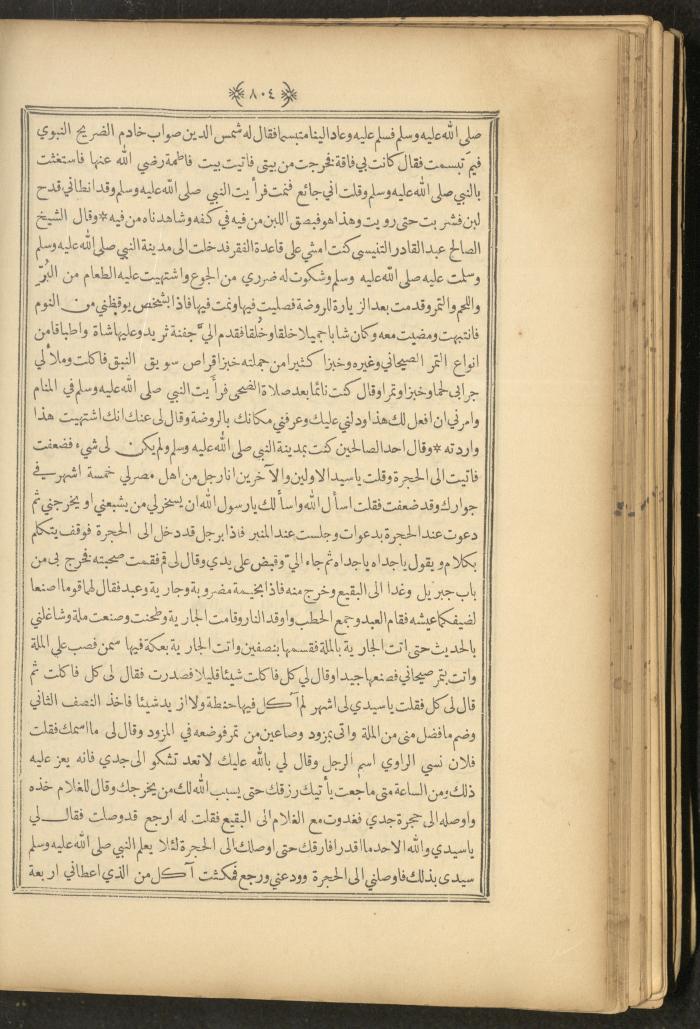 ٨٠٤
صلى الله عليه وسلم فسلم عليه وعاد الينا متبسما فقال له شمس الدين صواب خادم الضريح النبوي
فيمَ تبسمت فقال كانت بي فاقة فخرجت من بيتي فاتيت بيت فاطمة رضي الله عنها فاستغثت
بالنبي صلى الله عليه وسلم وقلت اني جائع فنمت فرأيت النبي صلى الله عليه وسلم وقد اعطاني قدح
لبن فشربت حتى رويت وهذا هو فبصق اللبن من فيه في كفه وشاهدناه من فيه * وقال الشيخ
الصالح عبد القادر التنيسي كنت امشي على قاعدة الفقر فدخلت الى مدينة النبي صلى الله عليه وسلم
وسلمت عليه صلى الله عليه وسلم وشكوت له ضرري من الجوع واشتهيت عليه الطعام من البُرّ
واللحم والتمر وقدمت بعد الزيارة للروضة فصليت فيها ونمت فيها فاذا بشخص يوقظني من النوم
فانتبهت ومضيت معه وكان شابا جميلا خلقا وخُلقا فقدم اليّ جفنة ثريد وعليها شاة واطباقا من
انواع التمر الصيحاني وغيره وخبزا كثيرا من جملته خبز اقراص سويق النبق فاكلت وملأ لي
جرابي لحما وخبزا وتمرا وقال كنت نائما بعد صلاة الضحى فرأيت النبي صلى الله عليه وسلم في المنام
وامرني ان افعل لك هذا ودلني عليك وعرفني مكانك بالروضة وقال لى عنك انك اشتهيت هذا
واردته * وقال احد الصالحين كنت بمدينة النبي صلى الله عليه وسلم ولم يكن لى شيء فضعفت
فاتيت الى الحجرة وقلت ياسيد الاولين والآخرين انا رجل من اهل مصر لي خمسة اشهر في
جوارك وقد ضعفت فقلت اسأل الله واسألك يارسول الله ان يسخر لي من يشبعني او يخرجني ثم
دعوت عند الحجرة بدعوات وجلست عند المنبر فاذا برجل قد دخل الى الحجرة فوقف يتكلم
بكلام ويقول ياجداه ياجداه ثم جاء اليّ وقبض على يدي وقال لى قم فقمت صحبته فخرج بى من
باب جبريل وغدا الى البقيع وخرج منه فاذا بخيمة مضروبة وجارية وعبد فقال لهما قوما اصنعا
لضيفكما عيشه فقام العبد وجمع الحطب واوقد النار وقامت الجارية وطحنت وصنعت ملة وشاغلني
بالحديث حتى اتت الجارية بالملة فقسمها بنصفين واتت الجارية بعكة فيها سمن فصب على الملة
واتت بتمر صيحاني فصنعها جيدا وقال لي كل فاكلت شيئا قليلا فصدرت فقال لى كل فاكلت ثم
قال لى كل فقلت ياسيدي لى اشهر لم آكل فيها حنطة ولا ازيد شيئا فاخذ النصف الثاني
وضم ما فضل منى من الملة واتى بمزود وصاعين من تمر فوضعه في المزود وقال لى ما اسمك فقلت
فلان نسي الراوي اسم الرجل وقال لي بالله عليك لا تعد تشكو الى جدي فانه يعز عليه
ذلك ومن الساعة متى ما جعت يأتيك رزقك حتى يسبب الله لك من يخرجك وقال للغلام خذه
واوصله الى حجرة جدي فغدوت مع الغلام الى البقيع فقلت له ارجع قد وصلت فقال لي
ياسيدي والله الاحد ما اقدر افارقك حتى اوصلك الى الحجرة لئلا يعلم النبي صلى الله عليه وسلم
سيدى بذلك فاوصلني الى الحجرة وودعني ورجع فمكثت آكل من الذي اعطاني اربعة